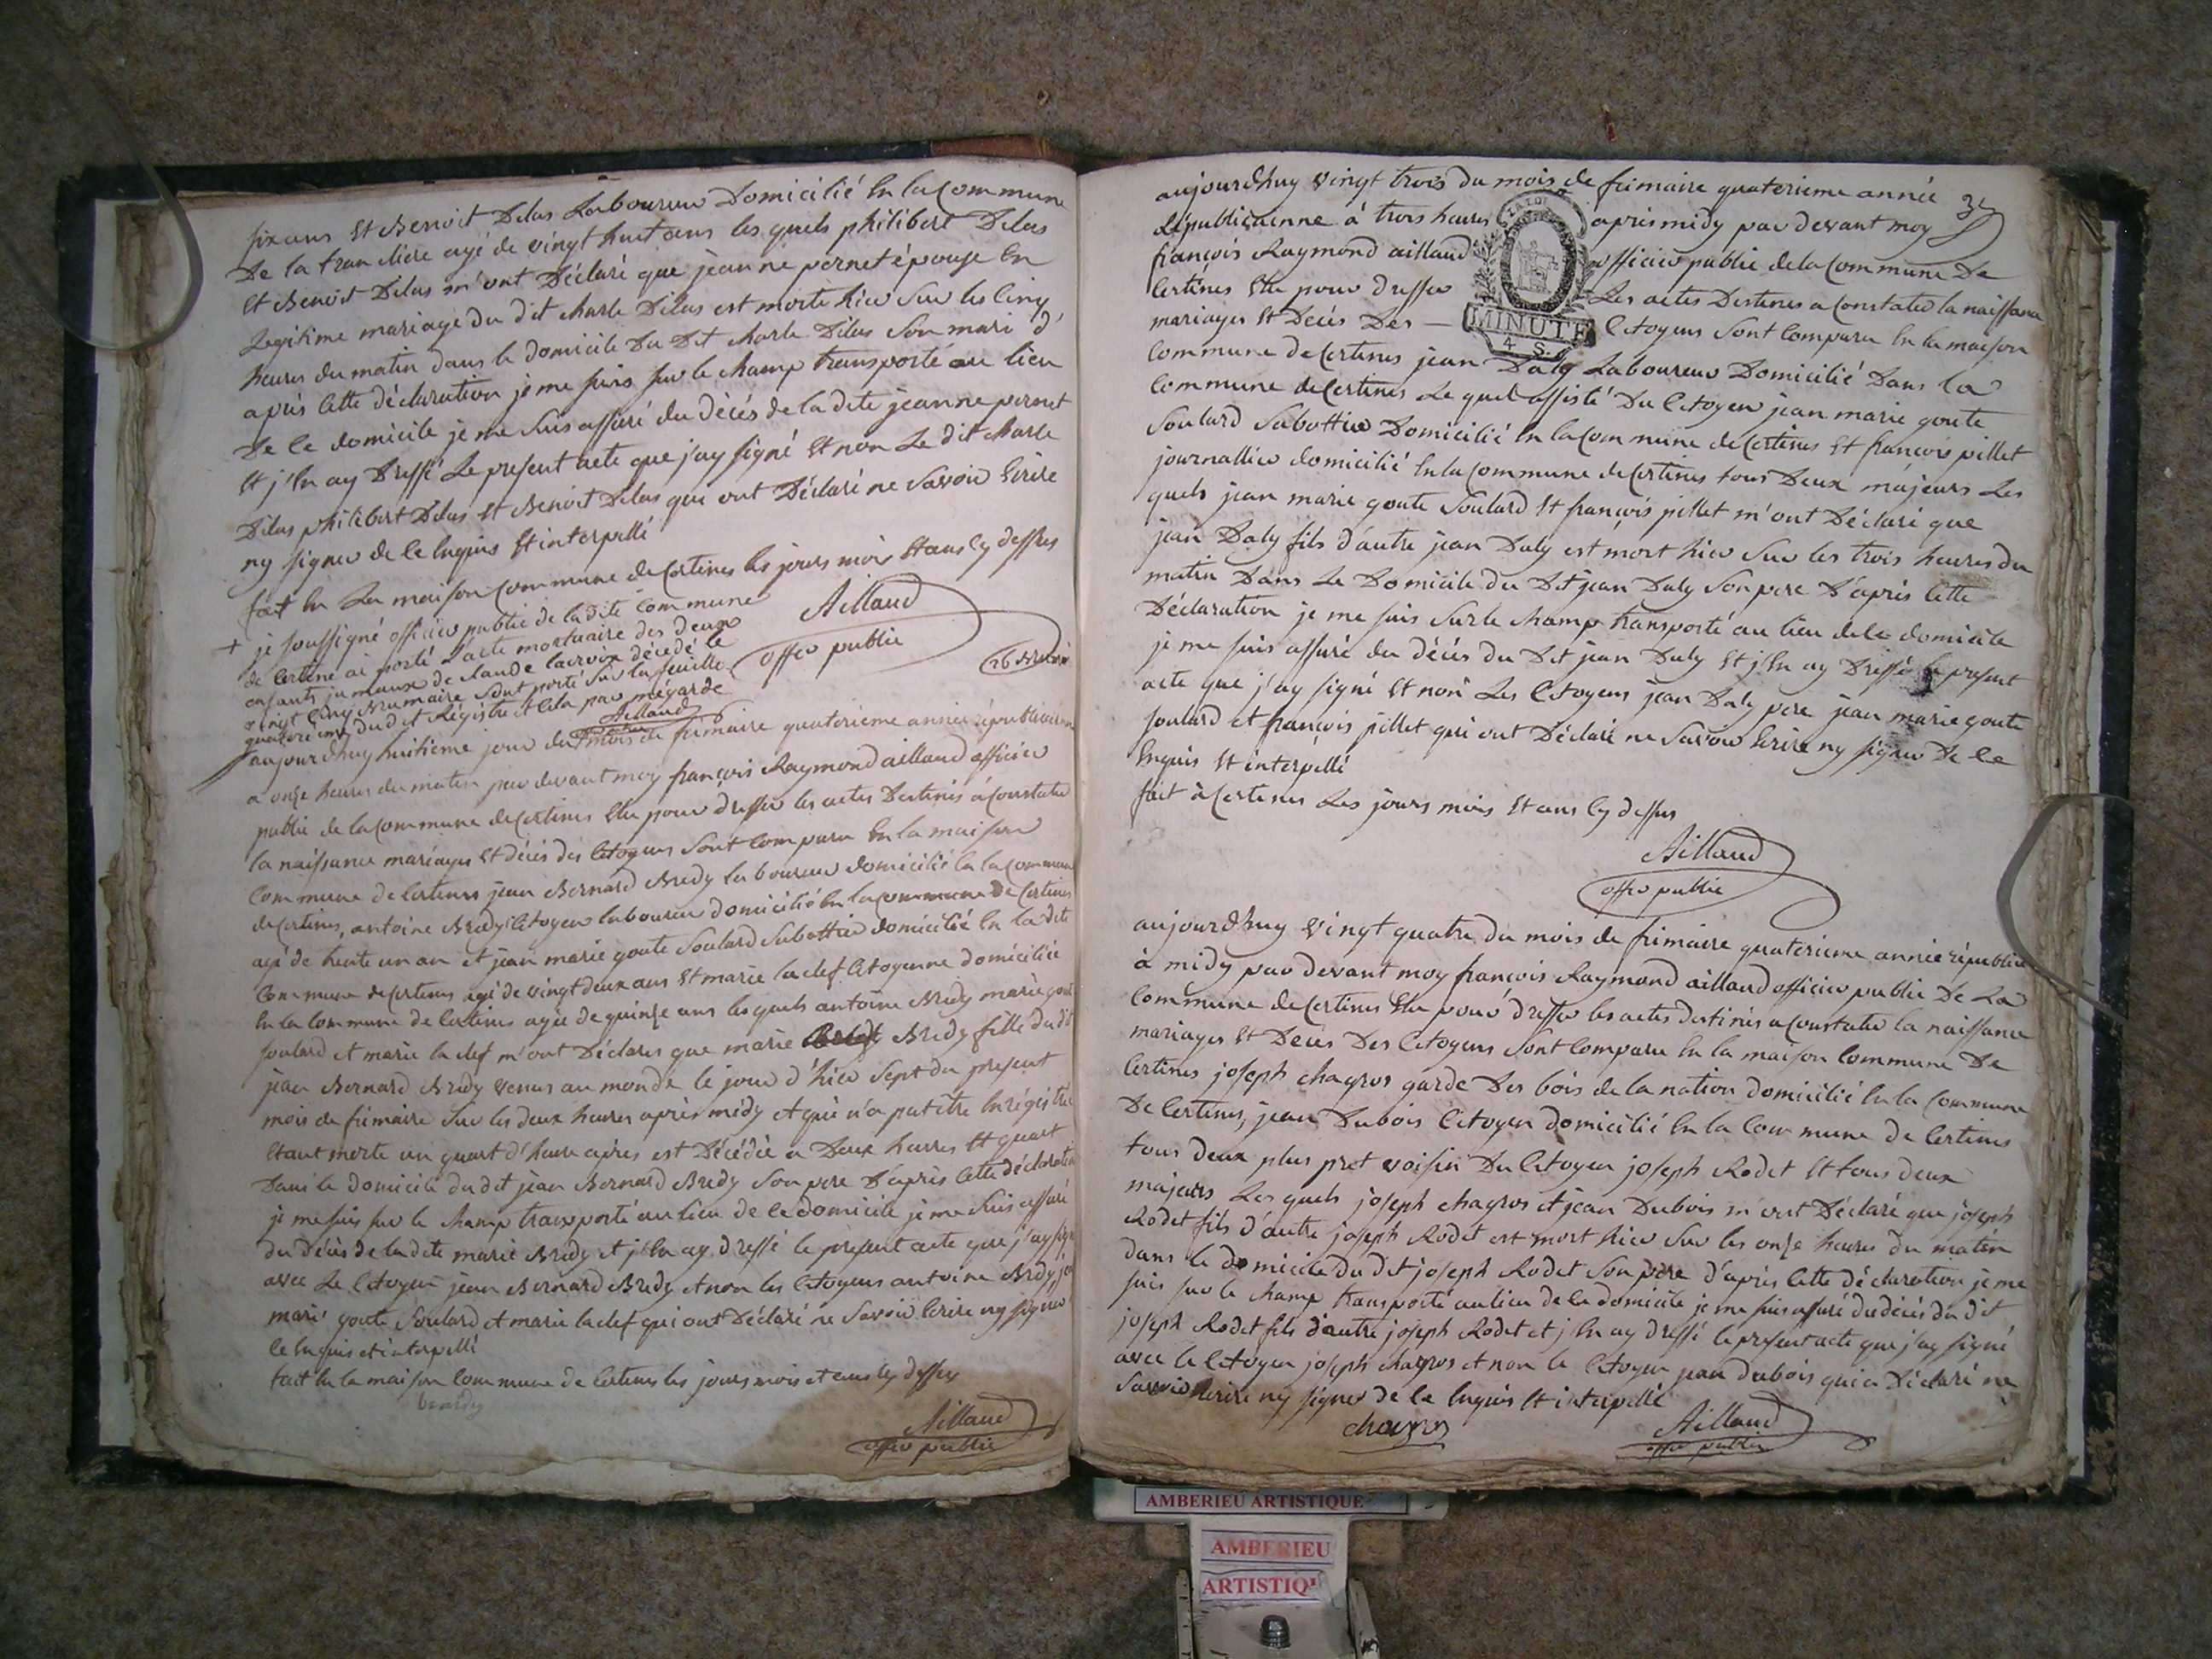 six ans Et Benoit Delas Laboureur Domicilié En la Commune
De la tranclière agé de vingt huit ans les quels philibert Delas
Et Benoit Delas m'ont Déclaré que jeanne pernet épouse En
Legitime mariage du dit charle Delas est morte hier Sur les Cinq
heures du matin dans le domicile Du Dit charle Delas Son mari d'
après Cette déclaration je me suis sur le champ transporté au lieu
De Ce domicile je me suis assuré du décès de la dite jeanne pernet
Et j'En ay Dressé Le present acte que j'ay signé Et non Le dit charle
Delas philibert Delas Et Benoit Delas qui ont Déclaré ne Savoir Ecrire
ny signer de Ce Enquis Et interpellé
fait En La maison Commune de Certines les jours mois Et ans Cy dessus
Aillaud
offer public
+ je soussigné officier public de la dite Commune
de Certine ai porté L'acte mortuaire des deux
enfants jumeaux de claude lacroix décédé le
vingt Cinq Brumaire Sont porté Sur la feuille
quatorieme du dit Régistre et Cela par mégarde
Aillaud
aujourdhuy huitième jour du mois de frimaire quaterieme année républicaine
a onze heures du matin par devant moy françois Raymond aillaud officier
public de la Commune de Certines Elu pour dresser les actes Destinés à Constater
la naissance mariages Et décès des Citoyens Sont Comparu En la maison
Commune de Certines jean Bernard Bredy laboureur domicilié En la Commune
de Certines, antoine Bredy Citoyen laboureur domicilié En la Commune De Certines
agé de trente un an et jean marie goute Soulard Sabottier domicilié En la dite
Commune de Certines agé de vingt deux ans Et marie laclef Citoyenne domiciliée
En la Commune de Certines agée de quinze ans les quels antoine Bredy marie gout
soulard et marie la clef m'ont Déclarés que marie Bredy fille du dit
jean Bernard Bredy venus au monde le jour d'hier Sept du present
mois de frimaire Sur les deux heures après midy et qui n'a put être Enrégistré
Etant morte un quart d'heure après est Décédée a Deux heures Et quart
Dans le domicile du dit jean Bernard Bredy Son pere D'après Cette déclaration
je me suis sur le champ transporté au lieu de Ce domicile je me suis assuré
du décès de la dite marie Bredy et j'En ay dressé le present acte que j'ay signé
avec Le Citoyen jean Bernard Bredy et non les Citoyens antoine Bredy
marie goute Soulard et marie laclef qui ont Déclaré ne Savoir Ecrire ny signer
de Ce Enquis et interpellé
fait En la maison Commune de Certines les jours mois et ans Cy dessus
Aillaud
offer public
aujourdhuy vingt trois du mois de frimaire quaterieme année
Républicaine à trois heures après midy par devant moy
françois Raymond aillaud officier public de la Commune De
Certines Elu pour dresser Les actes Destinés a Constater la naissance
mariages Et Décès Des — Citoyens Sont Comparu En la maison
MINUTE
4 S.
Commune de Certines jean Daly Laboureur Domicilié Dans la
Commune de Certines Le quel assisté Du Citoyen jean marie goute
Soulard Sabottier Domicilié En la Commune de Certines Et françois pillet
journallier domicilié En la Commune de Certines tous Deux majeurs Les
quels jean marie goute Soulard Et françois pillet m'ont Déclaré que
jean Daly fils d'autre jean Daly est mort hier Sur les trois heures du
matin Dans Le Domicile du Dit jean Daly Son pere D'après Cette
Déclaration je me suis Sur le champ transporté au lieu de Ce domicile
je me suis assuré du décès du Dit jean Daly Et j'En ay Dressé le present
acte que j'ay signé Et non Les Citoyens jean Daly pere jean marie goute
soulard et françois pillet qui ont Déclaré ne Savoir Ecrire ny signer De Ce
Enquis Et interpellé
fait à Certines Les jours mois Et ans Cy dessus
Aillaud
offer public
aujourdhuy vingt quatre du mois de frimaire quaterieme année républic
à midy par devant moy françois Raymond aillaud officier public De La
Commune de Certines Elu pour dresser les actes destinés a Constater la naissance
mariages Et Décès Des Citoyens Sont Comparu En la maison Commune De
Certines joseph chagros garde Des bois de la nation domicilié En la Commune
De Certines, jean Dubois Citoyen domicilié En la Commune de Certines
tous deux plus pret voisin Du Citoyen joseph Rodet Et tous deux
majeurs Les quels joseph chagros et jean Dubois m'ont Déclaré que joseph
Rodet fils d'autre joseph Rodet est mort hier Sur les onze heures du matin
dans le domicile du dit joseph Rodet Son père d'après Cette déclaration je me
suis sur le champ transporté au lieu de Ce domicile je me suis assuré du décès du dit
joseph Rodet fils d'autre joseph Rodet et j'En ay dressé le present acte que j'ay signé
avec le Citoyen joseph chagros et non le Citoyen jean dubois qui a Déclaré ne
Savoir Ecrire ny signer de Ce Enquis Et interpellé
chagros
Aillaud
offer public
AMBERIEU ARTISTIQUE
AMBERIEU
ARTISTIQU